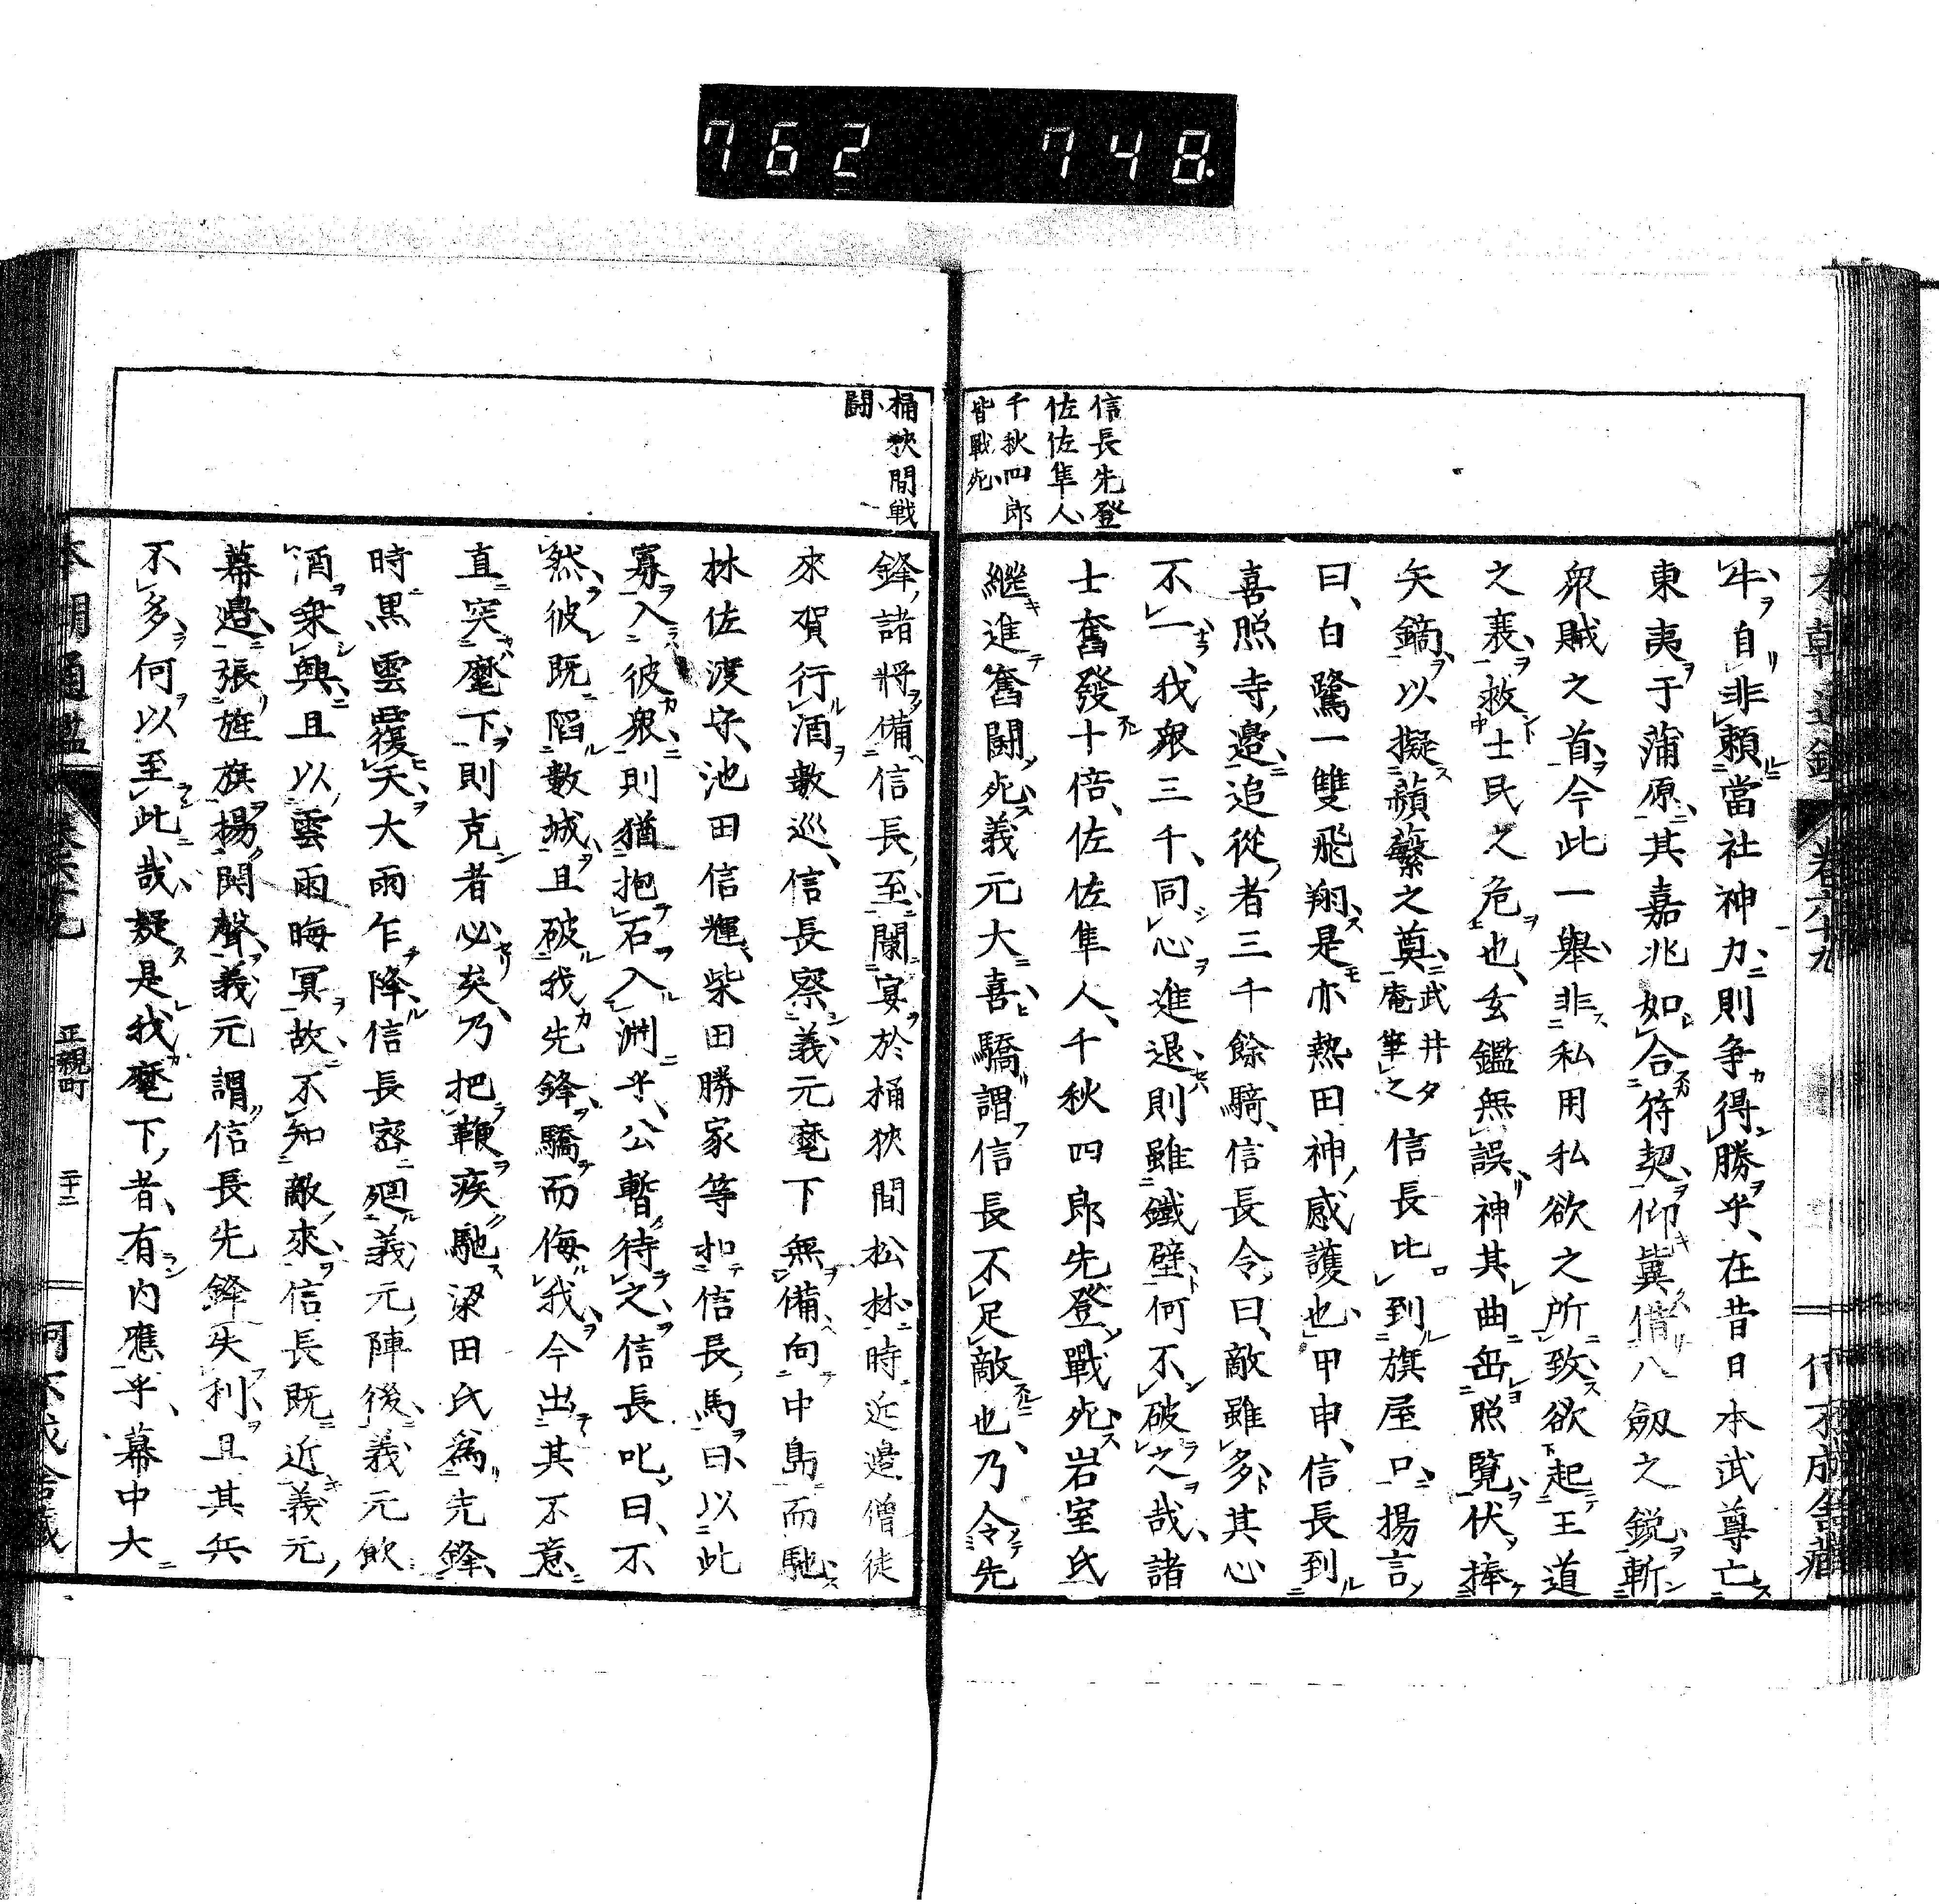 762 748.
信長先登
佐佐隼人
千秋四郎
皆戰死
牛自非賴當社神力則争得勝乎在昔日本武尊亡
東夷于蒲原其嘉兆如合符契仰冀借八劔之鋭斬
衆賊之首今此一舉非私用私欲之所致欲起王道
之衰救士民之危也玄鑑無誤神其曲垂照覽伏捧
矢鏑以擬蘋蘩之奠武井夕庵筆之信長比到旗屋口揚言
曰白鷺一雙飛翔是亦熱田神感護也甲申信長到
喜照寺邉追從者三千餘騎信長令曰敵雖多其心
不一我衆三千同心進退則雖鐵壁何不破之哉諸
士奮發十倍佐佐隼人千秋四郎先登戰死岩室氏
繼進奮鬪死義元大喜驕謂信長不足敵也乃令先
桶狹間戰
鬪
鋒諸將備信長至闌宴於桶狹間松林時近邉僧徒
來賀行酒數巡信長察義元麾下無備向中島而馳
林佐渡守池田信輝柴田勝家等扣信長馬曰以此
寡入彼衆則猶抱石入淵乎公暫待之信長叱曰不
然彼既陷數城且破我先鋒驕而侮我今出其不意
直突麾下則克者必矣乃把鞭疾馳梁田氏為先鋒
時黒雲覆天大雨乍降信長密廻義元陣後義元飲
酒乗興且以雲雨晦冥故不知敵來信長既近義元
幕邉張旌旗揚鬨聲義元謂信長先鋒失利且其兵
不多何以至此哉疑是我麾下者有内應乎幕中大
正親町
二十二